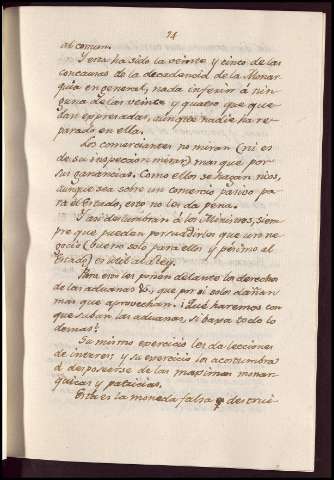 24
al comun.
Y esta ha sido la veinte y cinco de las
concausas de la decadencia de la Monar-
quia en general, nada inferior á nin-
guna de las veinte y quatro que que-
dan expresadas, aunque nadie ha re-
parado en ella.
Los comerciantes no miran (ni es
de su inspeccion mirar) mas que por
sus ganancias. Como ellos se hagan ricos,
aunque sea sobre un comercio pasivo pa-
ra el Estado, esto no les da pena.
Y asi deslumbran á los Ministros, siem-
pre que puedan persuadirlos que un ne-
gocio (bueno solo para ellos y pésimo el
Estado) es util al Rey.
Para esto les ponen delante los derechos
de las aduanas &, que por si solos dañan
mas que aprovechan. ¿Qué haremos con
que suban las aduanas, si baxa todo lo
demas?
Su mismo exercicio les da lecciones
de interes; y su exercicio los acostumbra
á desposeerse de las maximas monar-
quicas y patricias.
Esta es la moneda falsa q destrui-